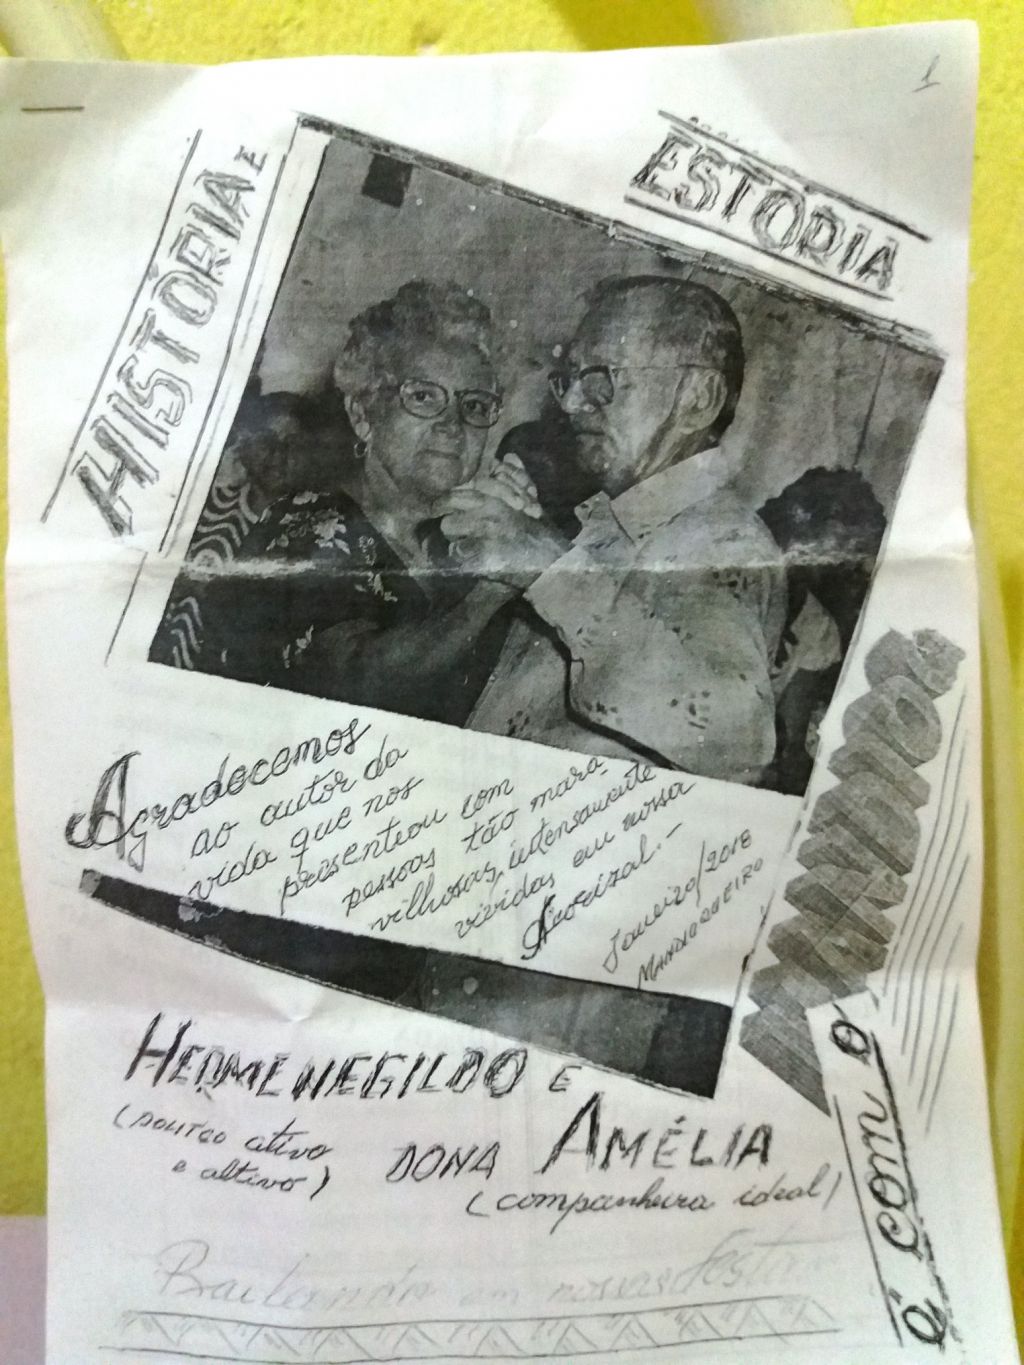 1
HISTÓRIA E
ESTÓRIA
Agradecemos
ao autor da
vida que nos
presenteou com
pessoas tão mara-
vilhosas, intensamente
vividas em nossa
Acorizal.-
Janeiro/2018
É COM O
HERMENEGILDO E
(POLITCO ativo
e altivo)
DONA AMÉLIA
(companheira ideal)
Bailando em nossas Festas